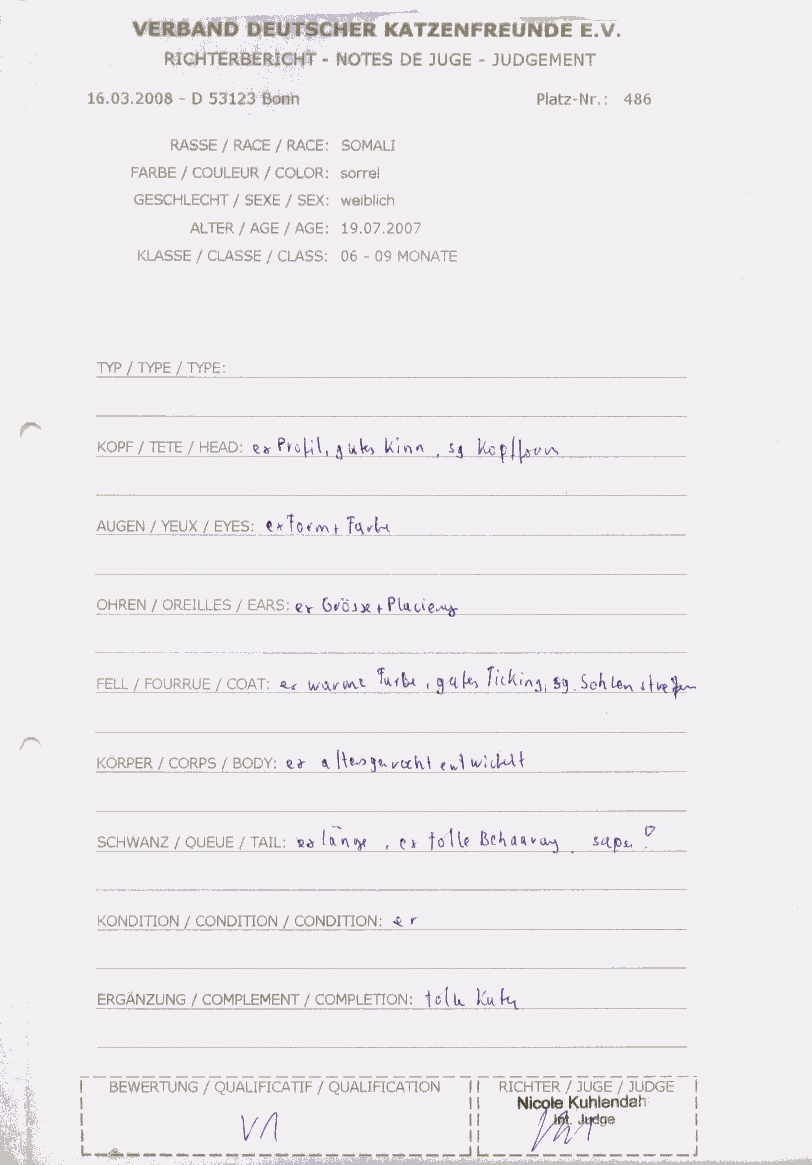 VERBAND DEUTSCHER KATZENFREUNDE E.V.
RICHTERBERICHT - NOTES DE JUGE - JUDGEMENT
16.03.2008 - D 53123 Bonn Platz-Nr.: 486
RASSE / RACE / RACE: SOMALI
FARBE / COULEUR / COLOR: sorrel
GESCHLECHT / SEXE / SEX: weiblich
ALTER / AGE / AGE: 19.07.2007
KLASSE / CLASSE / CLASS: 06 - 09 MONATE
TYP / TYPE / TYPE:
KOPF / TETE / HEAD: ex Profil, gutes Kinn, sg Kopfform
AUGEN / YEUX / EYES: ex Form + Farbe
OHREN / OREILLES / EARS: ex Grösse + Placierung
FELL / FOURRUE / COAT: ex warme Farbe, gutes Ticking, sg. Sohlenstreifen
KÖRPER / CORPS / BODY: ex altersgerecht entwickelt
SCHWANZ / QUEUE / TAIL: ex länge, ex tolle Behaarung, super!
KONDITION / CONDITION / CONDITION: ex
ERGÄNZUNG / COMPLEMENT / COMPLETION: tolle Katze
BEWERTUNG / QUALIFICATIF / QUALIFICATION
V1
RICHTER / JUGE / JUDGE
Nicole Kuhlendah
Int. Judge